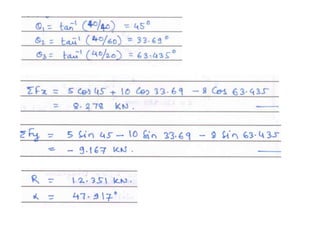 Q₁ = tan⁻¹ (40/40) = 45°
Q₂ = tan⁻¹ (40/60) = 33.69°
Q₃ = tan⁻¹ (40/20) = 63.435°
Σfx = 5 cos 45 + 10 cos 33.69 - 8 cos 63.435
= 8.278 KN.
Σfy = 5 Sin 45 - 10 Sin 33.69 - 8 Sin 63.435
= - 9.167 KN.
R = 12.351 KN.
α = 47.917°